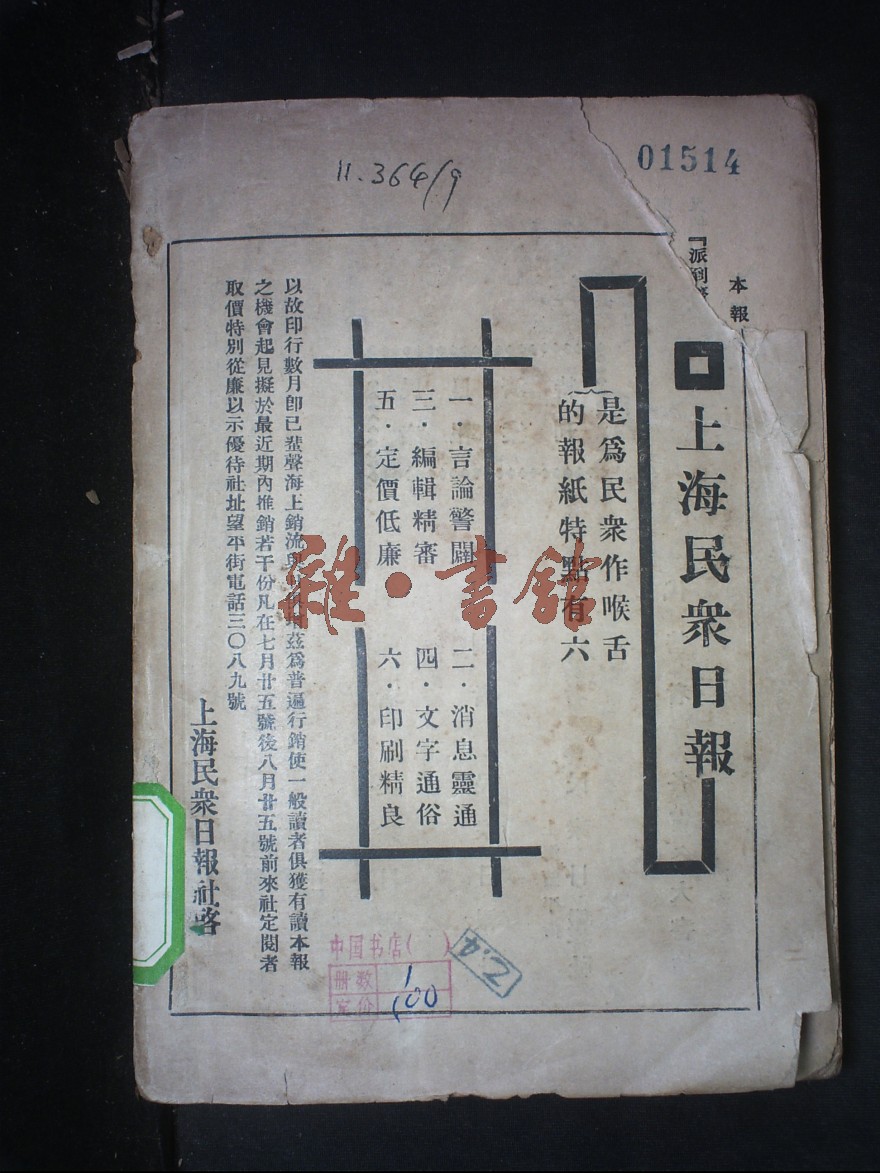 01514
11.364/9
本報
『派到
上海民衆日報
是爲民衆作喉舌
的報紙特點有六
一．言論警闢
二．消息靈通
三．編輯精審
四．文字通俗
五．定價低廉
六．印刷精良
以故印行數月卽已蜚聲海上銷流 茲爲普遍行銷使一般讀者俱獲有讀本報
之機會起見擬於最近期內推銷若干份凡在七月廿五號後八月廿五號前來社定閱者
取價特別從廉以示優待社址望平街電話三〇八九號
上海民衆日報社啓
雜·書館
中国书店( )
册数 1
定价 100